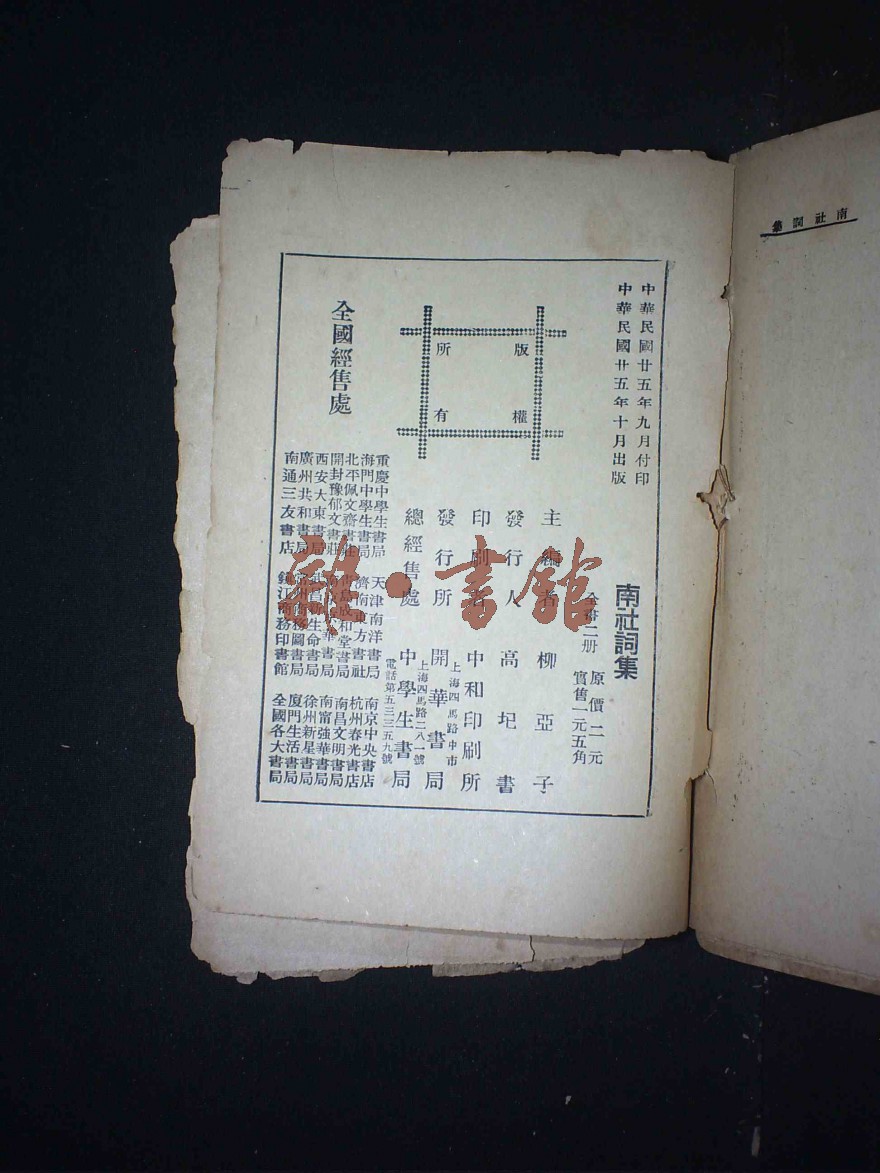 南社詞集
中華民國廿五年九月付印
中華民國廿五年十月出版
南社詞集
全書二册
原價二元
實售一元五角
版權
所有
主編者 柳亞子
發行人 高圯書
印刷者 中和印刷所
上海四馬路中市
發行所 開華書局
上海四馬路二八一號
總經售處 中學生書局
電話第五三三五九號
全國經售處
重慶中學生書局
海門中學生書局
北平佩文齋書莊
開封豫郁文書莊
西安大東書局
廣州共和書局
南通三友書店
天津南洋書局
濟南東方書社
成和堂書局
華書局
生命書局
鎮江商務印書館
南京中央書店
杭州春光書店
南昌文明書局
南富強華書局
徐州新星書局
廈門生活書局
全國各大書局
雜·書館